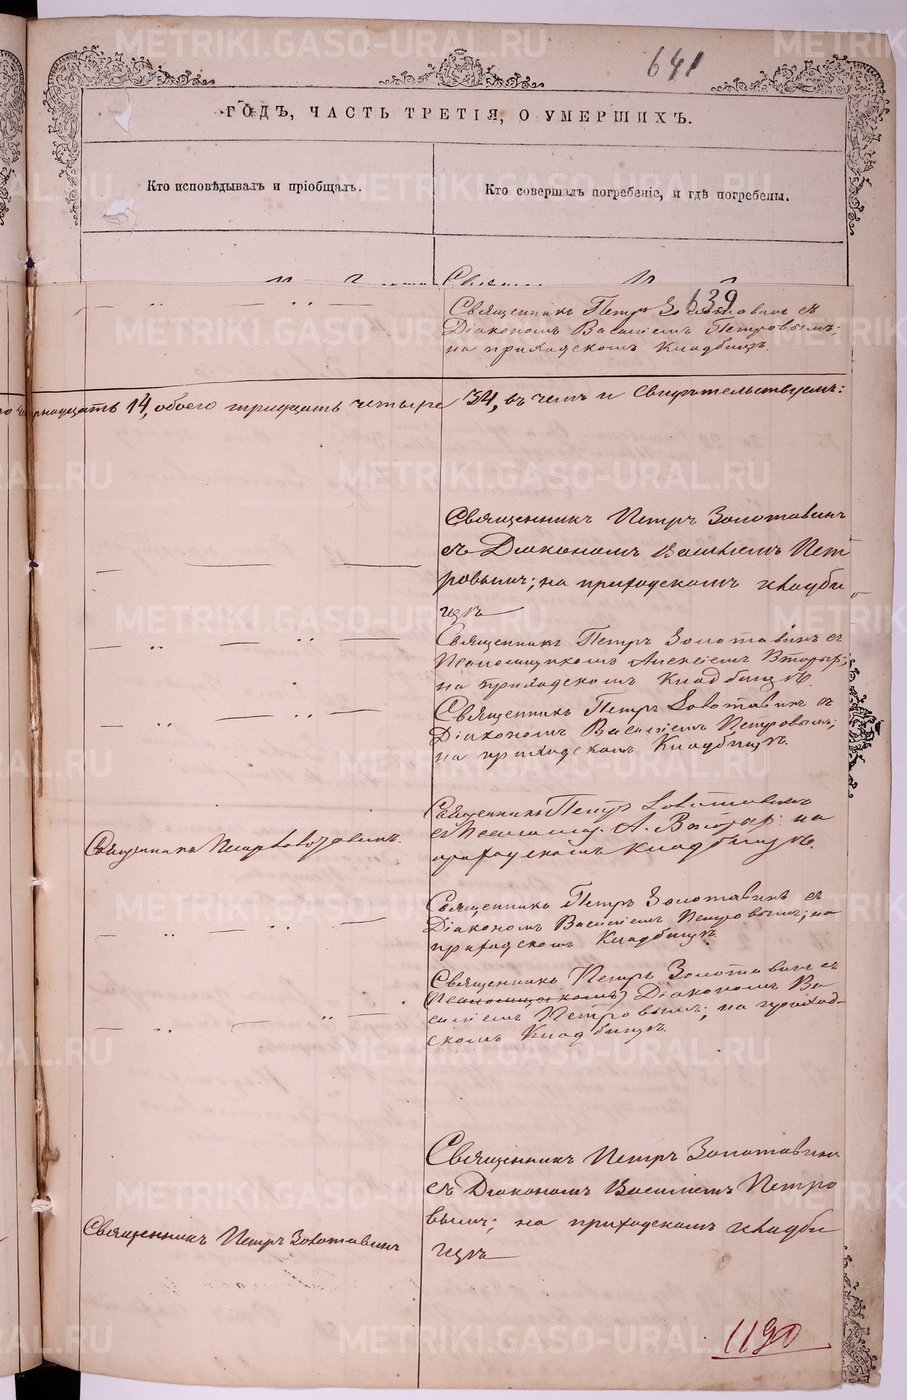 641
ГОДЪ, ЧАСТЬ ТРЕТІЯ, О УМЕРШИХЪ.
Кто исповѣдывалъ и пріобщалъ.
Кто совершалъ погребеніе, и гдѣ погребены.
639
Священникъ Петръ Золотавинъ съ
Діакономъ Василіемъ Петровымъ:
на приходскомъ Кладбищѣ.
14, обоего тридцать четыре 34, въ чемъ и свидѣтельствуемъ:
Священникъ Петръ Золотавинъ
съ Діакономъ Василіемъ Пет
ровымъ; на приходскомъ кладби
щѣ
Священникъ Петръ Золотавинъ съ
Псаломщикомъ Алексіемъ Вторых;
на приходскомъ Кладбищѣ.
Священникъ Петръ Золотавинъ съ
Діакономъ Василіемъ Петровымъ;
на приходскомъ Кладбищѣ.
Священникъ Петръ Золотавинъ
Священникъ Петръ Золотавинъ.
съ Псаломщ. А. Вторых: на
приходскомъ Кладбищѣ.
Священникъ Петръ Золотавинъ съ
Діакономъ Василіемъ Петровымъ; на
приходскомъ Кладбищѣ.
Священникъ Петръ Золотавинъ съ
(Псаломщикомъ) Діакономъ Ва
силіемъ Петровымъ; на приход-
скомъ Кладбищѣ.
Священникъ Петръ Золотавинъ
съ Діакономъ Василіемъ Петро
вымъ; на приходскомъ кладби
Священникъ Петръ Золотавинъ
щѣ
1190
METRIKI.GASO-URAL.RU